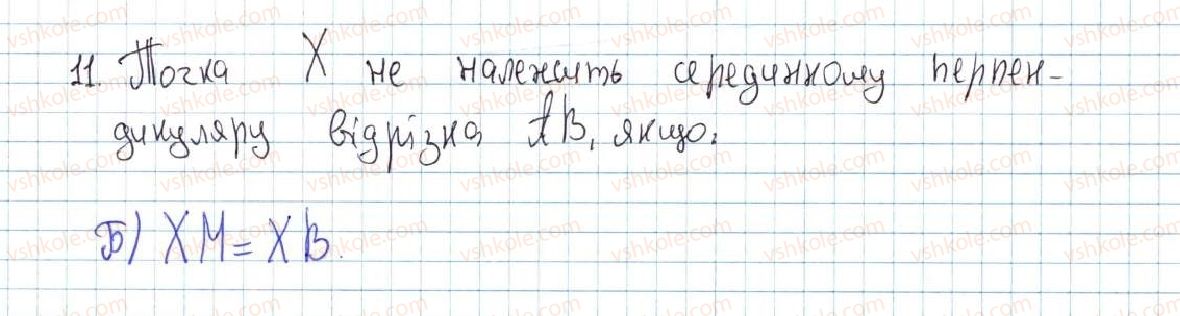 11. Точка X не належить серединному перпен-
дикуляру відрізка AB, якщо:
Б) XM = XB.